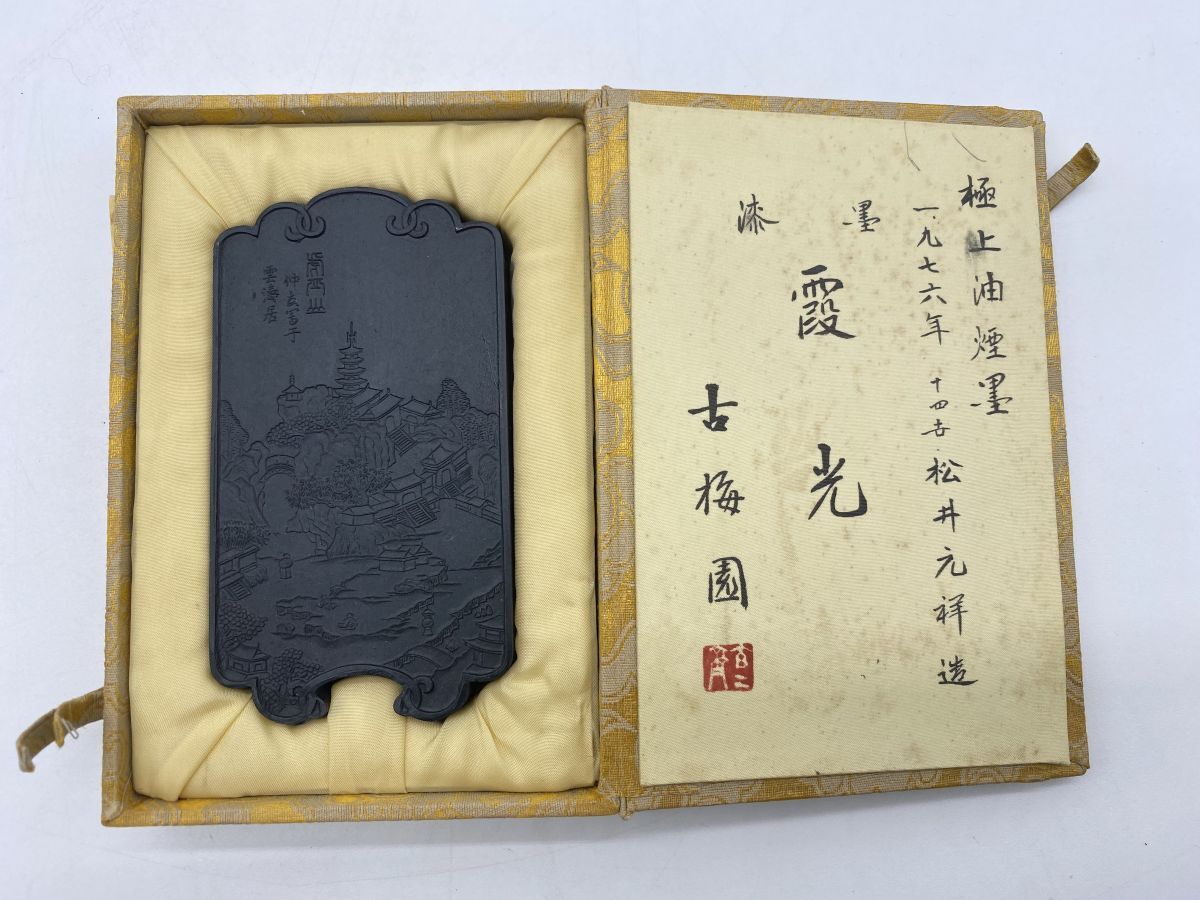 極上油煙墨
一九七六年 十四世松井元祥造
漆墨
霞光
古梅園
虎丘山
雲濤居